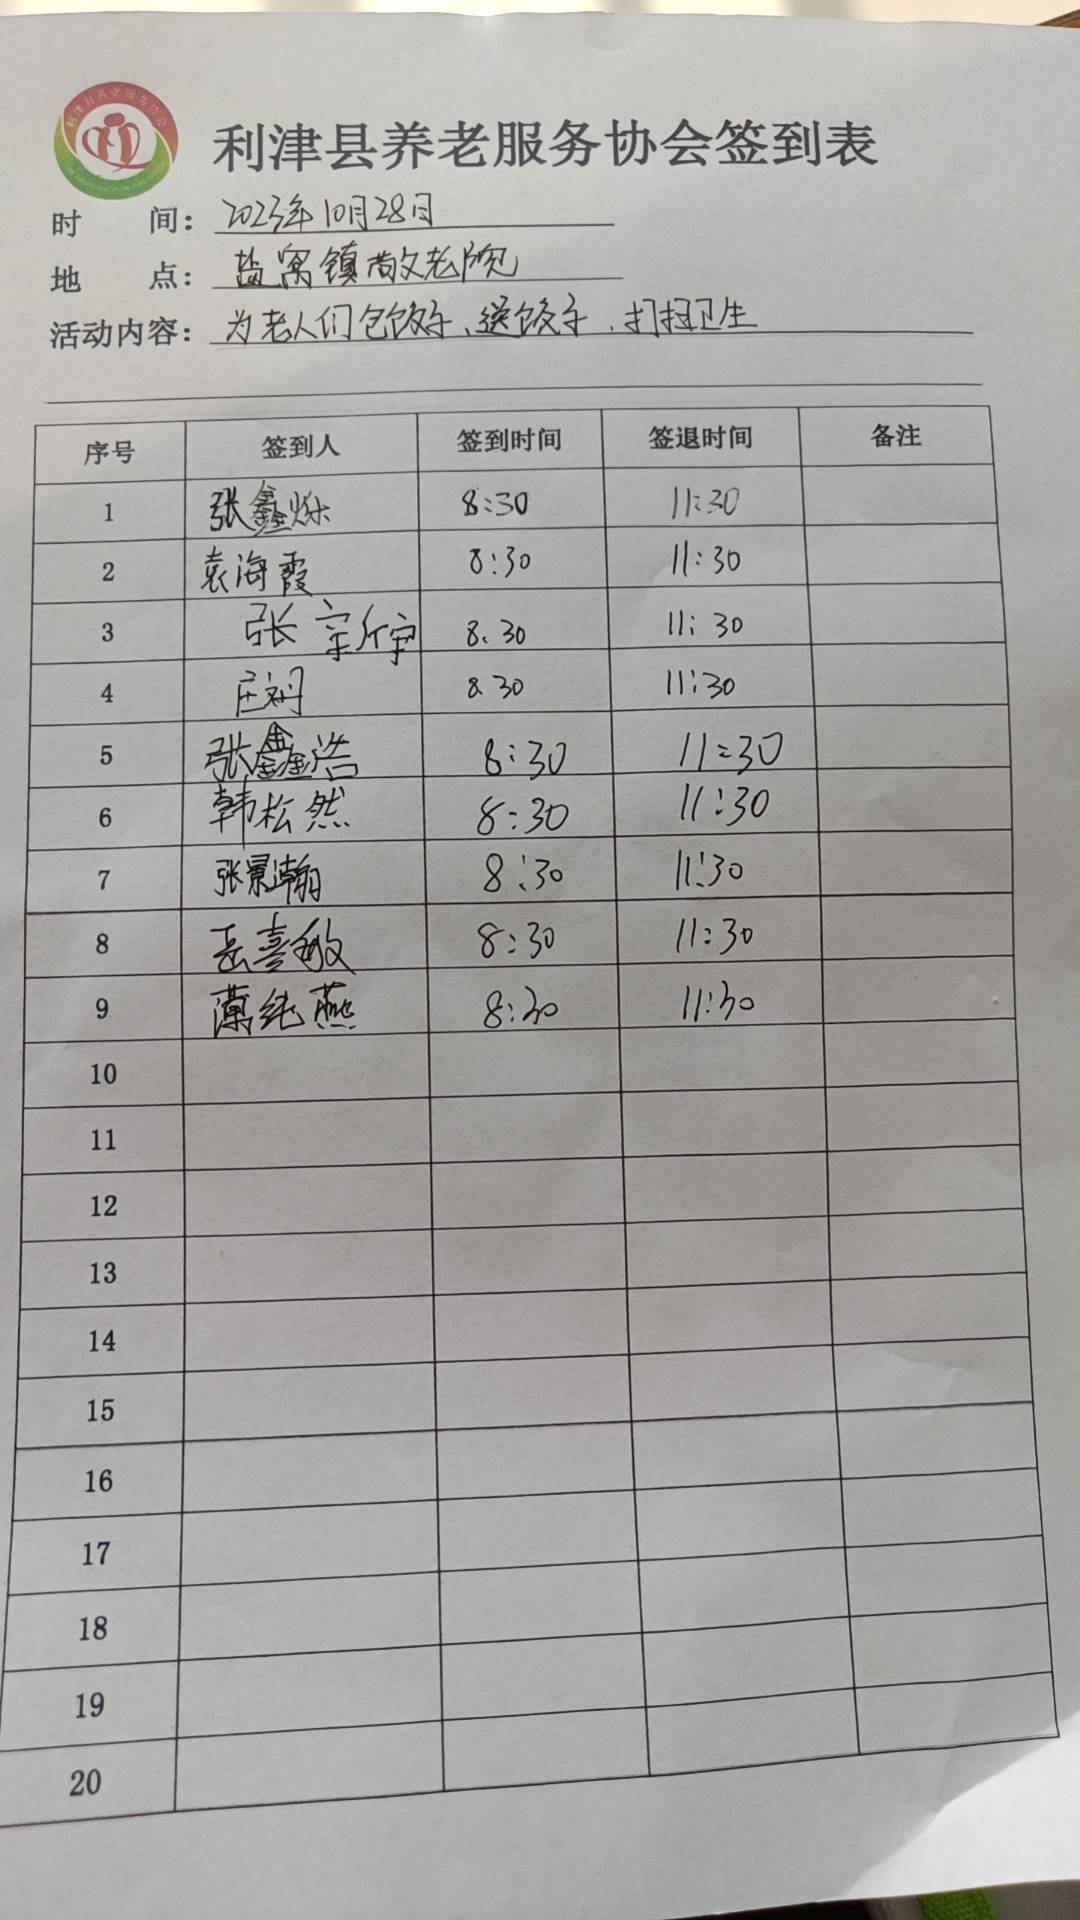 利津县养老服务协会
利津县养老服务协会签到表
时 间：2023年10月28日
地 点：盐窝镇敬老院
活动内容：为老人们包饺子、送饺子、打扫卫生
序号 签到人 签到时间 签退时间 备注
1 张鑫烁 8:30 11:30
2 袁海霞 8:30 11:30
3 张 8.30 11:30
4 8.30 11:30
5 张鑫浩 8:30 11:30
6 韩松然 8:30 11:30
7 张景瀚 8:30 11:30
8 岳喜敏 8:30 11:30
9 纯燕 8:30 11:30
10
11
12
13
14
15
16
17
18
19
20